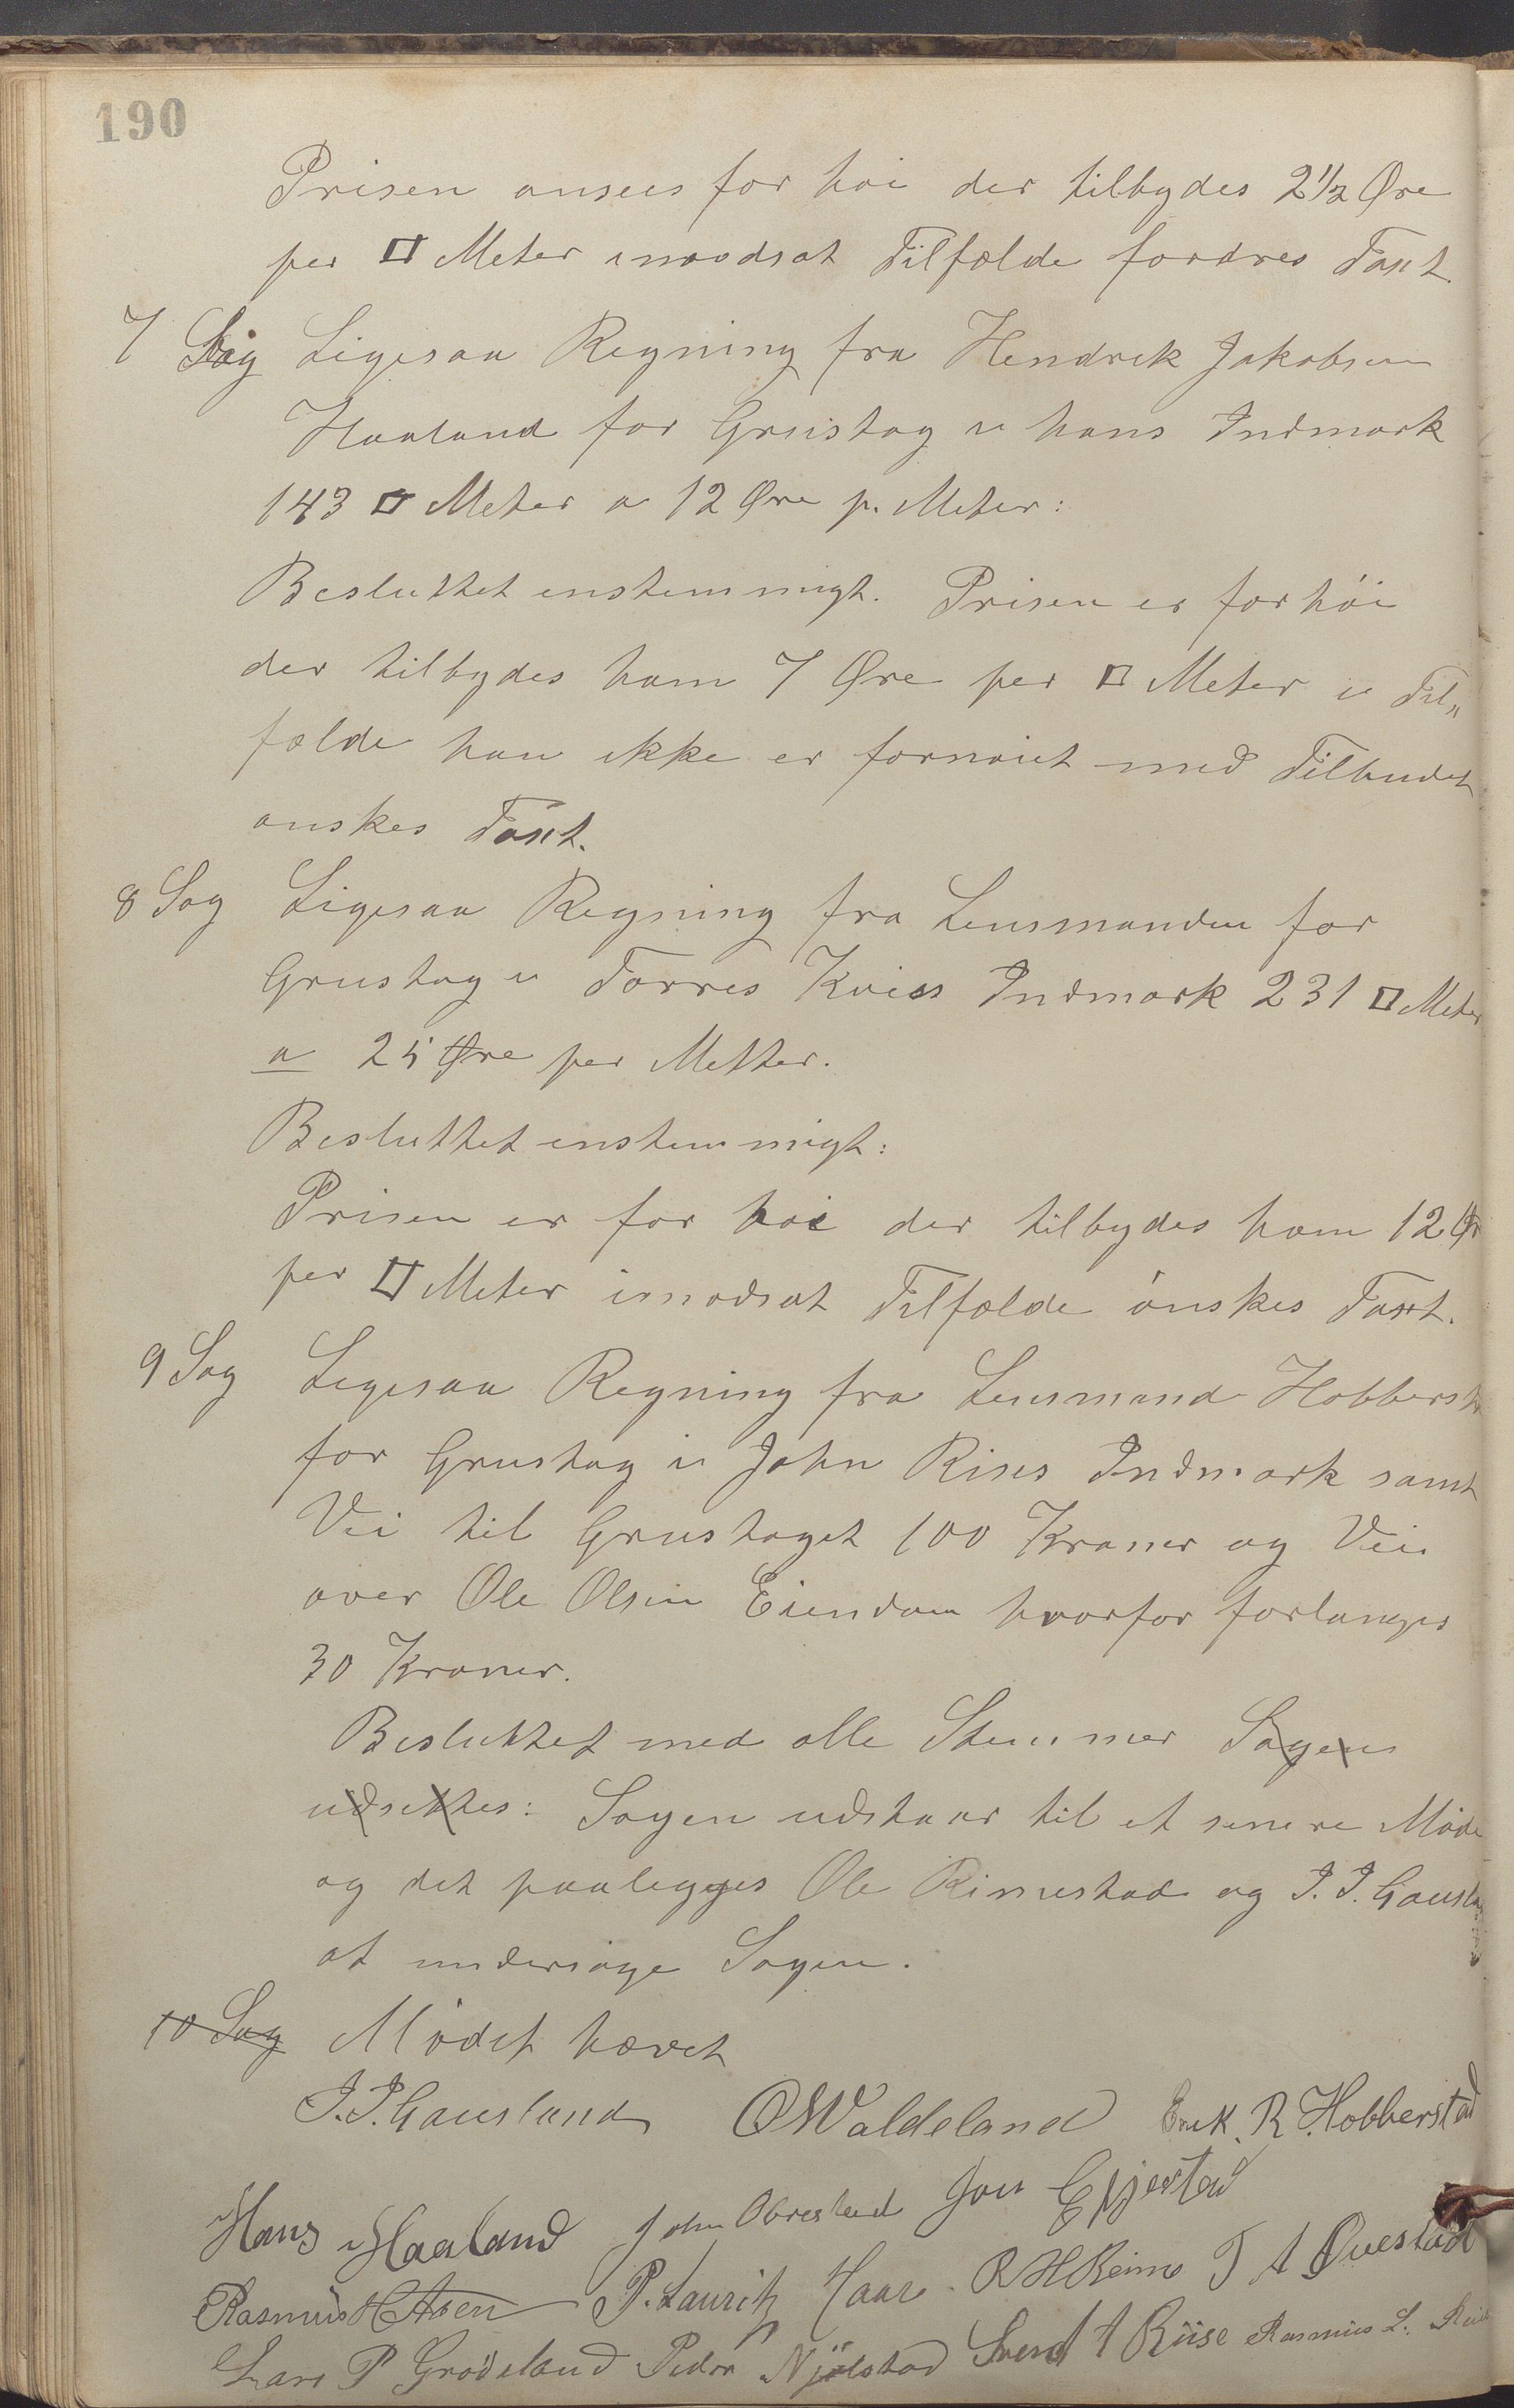 190
Prisen ansees for høi der tilbydes 2 1/2 Øre
per □ Meter imodsat Tilfælde fordres Taxt
7 Sag Ligesaa Regning fra Hendrek Jakobsen
Haaland for Grustag i hans Indmark
143 □ Meter a 12 Øre p. Meter:
Besluttet enstemmigt. Prisen er for høi
der tilbydes ham 7 Øre per □ Meter i Til„
fælde han ikke er fornøiet med Tilbudet
ønskes Taxt.
8 Sag Ligesaa Regning fra Lensmanden for
Grustag i Torres Kviss Indmark 231 □ Meter
a 25 Øre per Metter.
Besluttet enstemmigt:
Prisen er for høi der tilbydes ham 12 Ør
per □ Meter imodsat Tilfælde ønskes Taxt.
9 Sag Ligesaa Regning fra Lensmand Hobberst
for Grustag i John Rises Indmark samt
Vei til Grustaget 100 Kroner og Vei
over Ole Olsen Eiendom hvorfor forlanges
30 Kroner.
Besluttet med alle Stemmer Sagen
udsettes: Sagen udstaar til et senere Møde
og det paalegges Ole Rimestad og J. J. Gausla
at undersøge Sagen.
10 Sag Mødet hævet
J. J. Gausland OWaldeland Erik. R. Hobberstad
Hans Haaland John Obrestad Jon Evjestad
Rasmus H Asen P. Lauritz Haar. R H Reime T A Questad
Lars P Grødeland Peder Njølstad Svend A Riise Rasmus L.